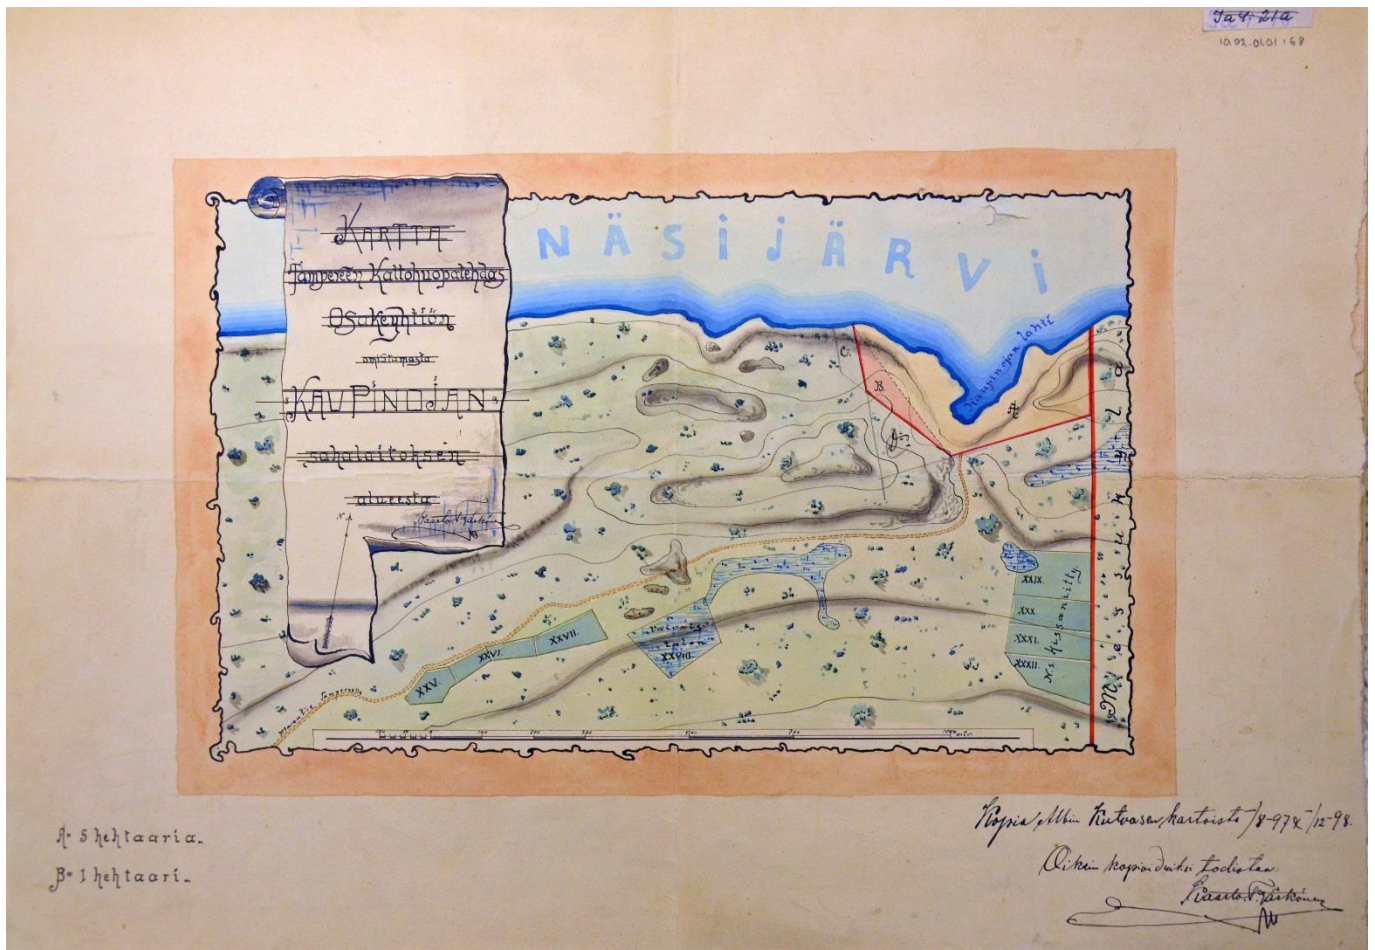 Ja 4:21a
10.02.01.01:68
KARTTA
Tampereen Kattohuopatehdas
Osakeyhtiön
omistamasta
KAUPiNOJAN
sahalaitoksen
alueesta
N
NÄSiJÄRVi
Kaupinojan lahti
C.
B.
A.
XXIX.
XXX.
XXXI.
XXXII.
N:s Kissaniitty.
XXV.
XXVI.
XXVII.
XXVIII.
Tampereen
A= 5 hehtaaria.
B= 1 hehtaari.
Kopia Albin Kutvosen kartoista /8-97 & /12-98.
Oikein kopioiduiksi todistaa: